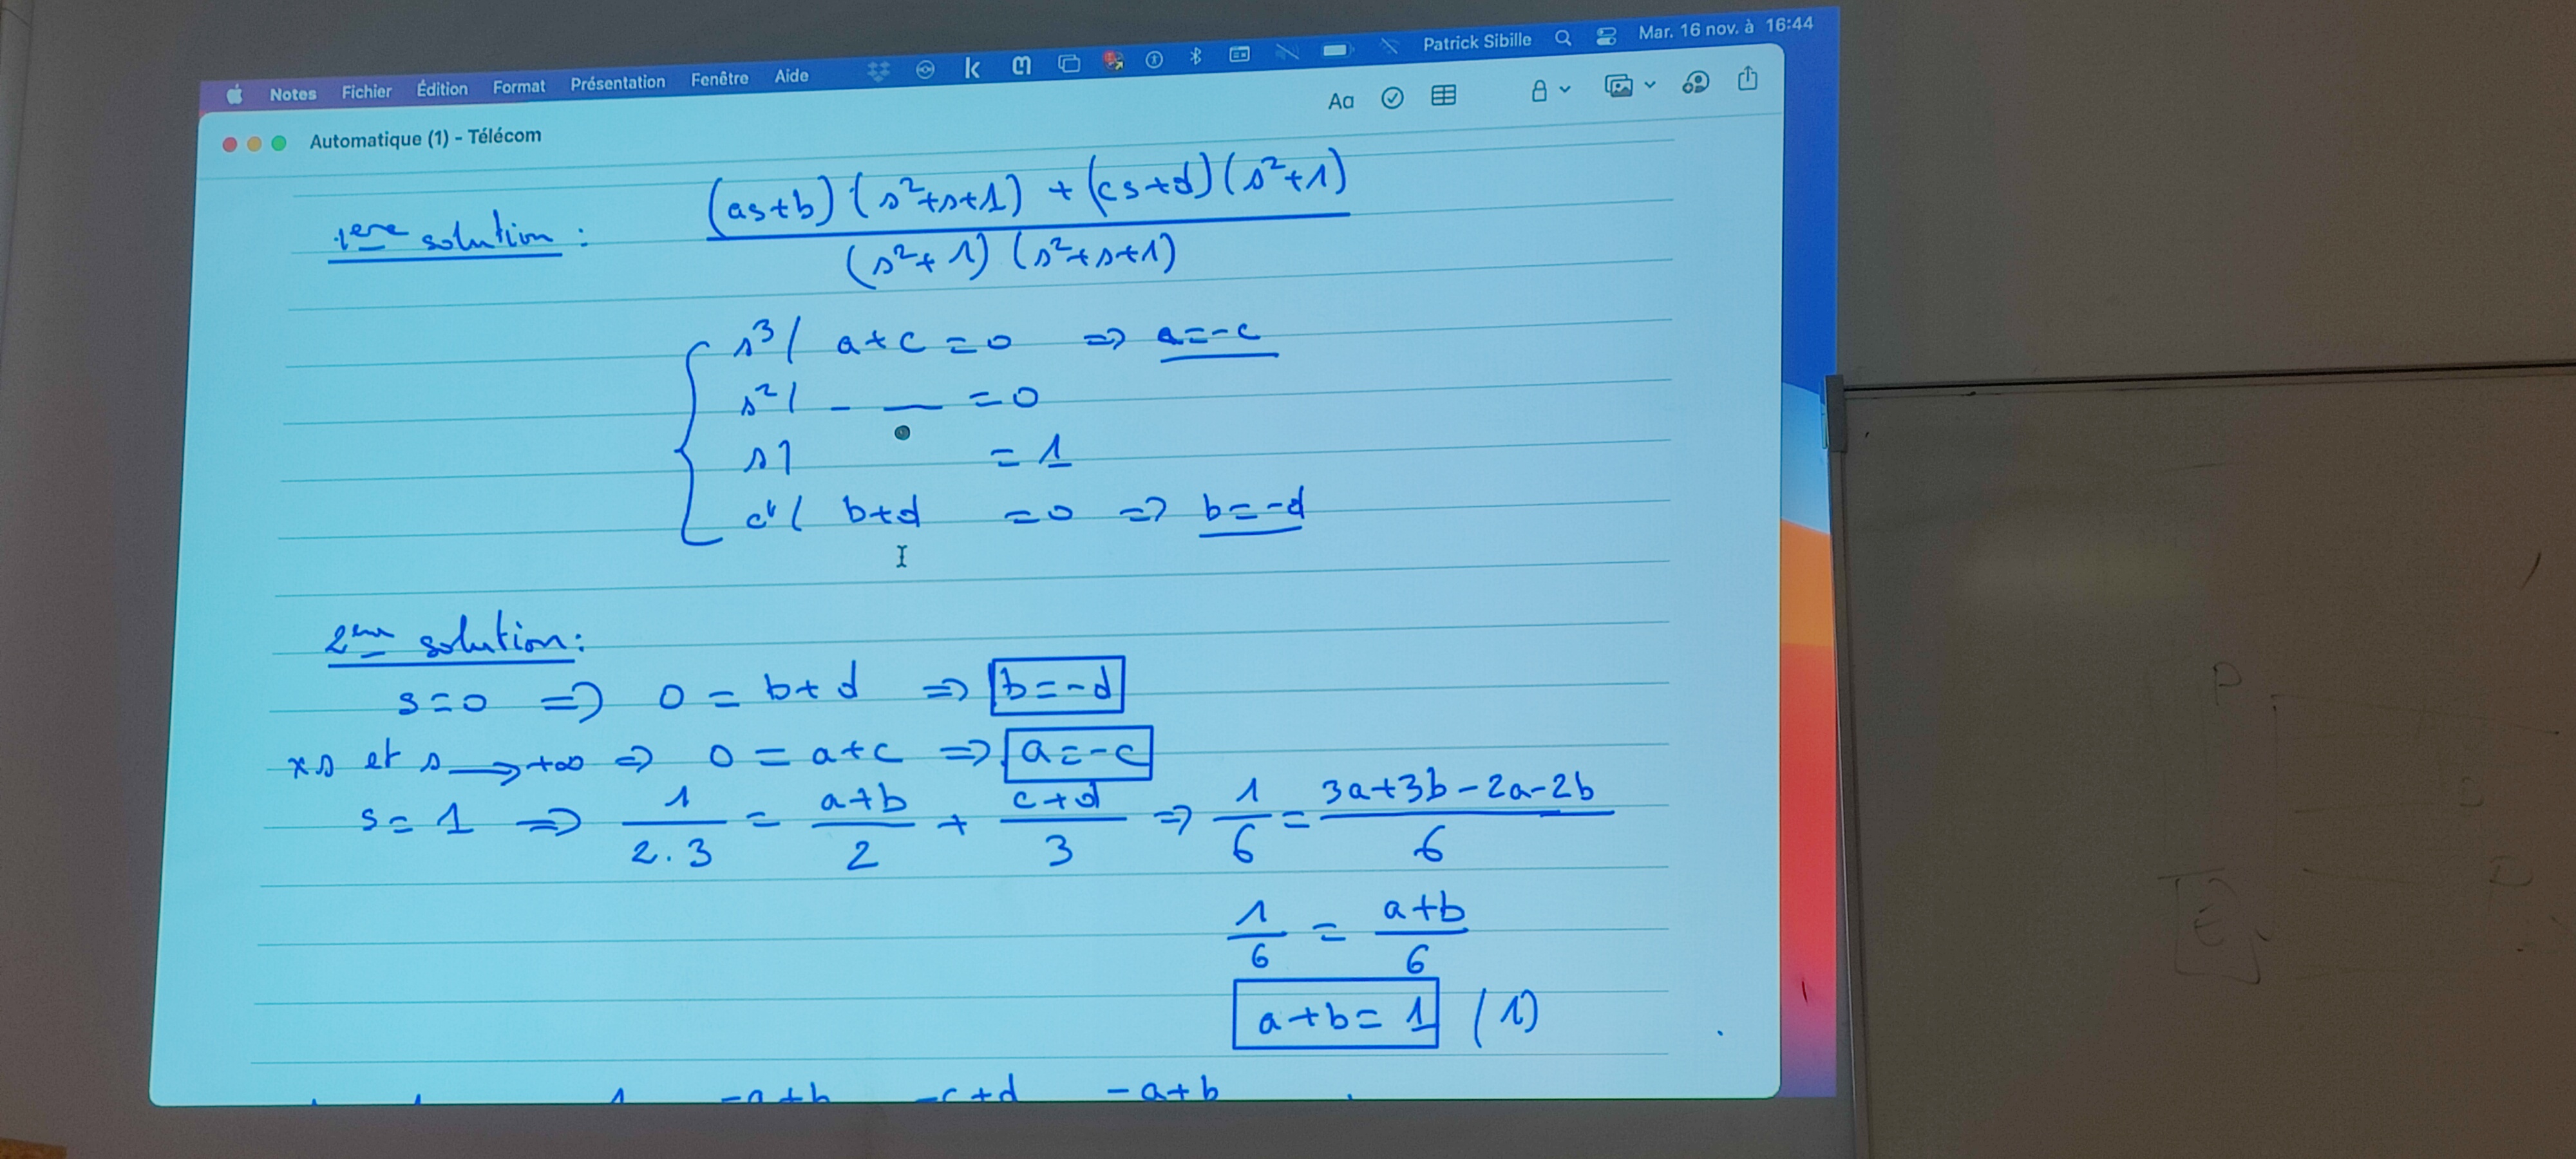 Notes Fichier Édition Format Présentation Fenêtre Aide Patrick Sibille Mar. 16 nov. à 16:44
Aa
Automatique (1) - Télécom
1ere solution : (as+b)(s²+s+1) + (cs+d)(s²+1)
(s²+1)(s²+s+1)
s³/ a+c=0 => a=-c
s²/ - — =0
s/ = 1
c^t/ b+d =0 => b=-d
2eme solution:
s=0 => 0 = b+d => b=-d
×s et s→+∞ => 0 = a+c => a=-c
s=1 => 1/2.3 = a+b/2 + c+d/3 => 1/6 = 3a+3b-2a-2b/6
1/6 = a+b/6
a+b=1 (1)
-a+b -c+d -a+b
P
E